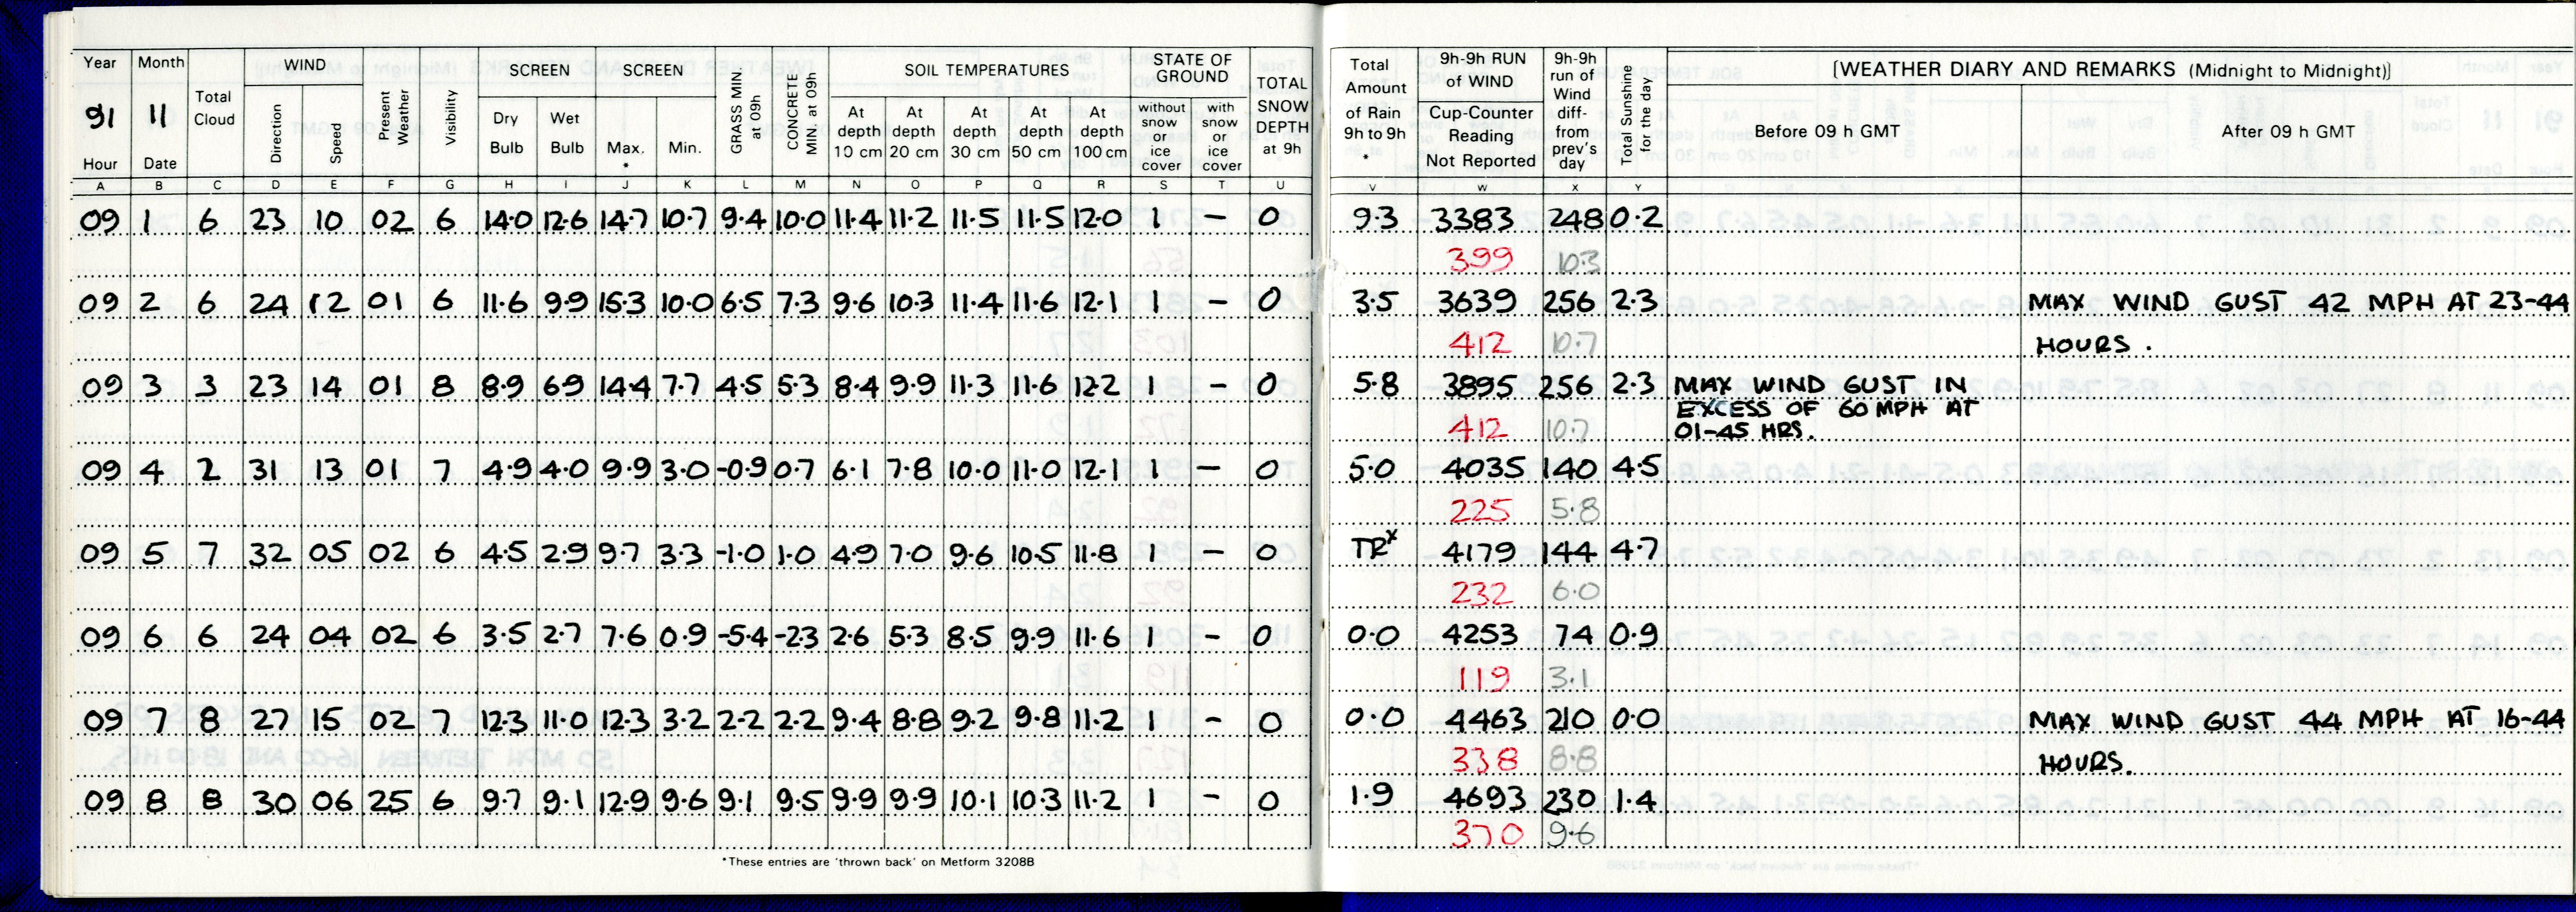 Year Month Total Cloud WIND Present Weather Visibility SCREEN SCREEN GRASS MIN. at 09h CONCRETE MIN. at 09h SOIL TEMPERATURES STATE OF GROUND TOTAL SNOW DEPTH at 9h Total Amount of Rain 9h to 9h * 9h-9h RUN of WIND 9h-9h run of Wind diff- from prev's day Total Sunshine for the day [WEATHER DIARY AND REMARKS (Midnight to Midnight)]
91 11 Direction Speed Dry Bulb Wet Bulb Max. * Min. At depth 10 cm At depth 20 cm At depth 30 cm At depth 50 cm At depth 100 cm without snow or ice cover with snow or ice cover Cup-Counter Reading Not Reported Before 09 h GMT After 09 h GMT
Hour Date
A B C D E F G H I J K L M N O P Q R S T U V W X Y
09 1 6 23 10 02 6 14.0 12.6 14.7 10.7 9.4 10.0 11.4 11.2 11.5 11.5 12.0 1 – 0 9.3 3383 248 0.2
399 10.3
09 2 6 24 12 01 6 11.6 9.9 15.3 10.0 6.5 7.3 9.6 10.3 11.4 11.6 12.1 1 – 0 3.5 3639 256 2.3 MAX WIND GUST 42 MPH AT 23-44
412 10.7 HOURS.
09 3 3 23 14 01 8 8.9 6.9 14.4 7.7 4.5 5.3 8.4 9.9 11.3 11.6 12.2 1 – 0 5.8 3895 256 2.3 MAX WIND GUST IN
EXCESS OF 60 MPH AT
412 10.7 01-45 HRS.
09 4 2 31 13 01 7 4.9 4.0 9.9 3.0 -0.9 0.7 6.1 7.8 10.0 11.0 12.1 1 – 0 5.0 4035 140 4.5
225 5.8
09 5 7 32 05 02 6 4.5 2.9 9.7 3.3 -1.0 1.0 4.9 7.0 9.6 10.5 11.8 1 – 0 TRx 4179 144 4.7
232 6.0
09 6 6 24 04 02 6 3.5 2.7 7.6 0.9 -5.4 -2.3 2.6 5.3 8.5 9.9 11.6 1 – 0 0.0 4253 74 0.9
119 3.1
09 7 8 27 15 02 7 12.3 11.0 12.3 3.2 2.2 2.2 9.4 8.8 9.2 9.8 11.2 1 – 0 0.0 4463 210 0.0 MAX WIND GUST 44 MPH AT 16-44
338 8.8 HOURS.
09 8 8 30 06 25 6 9.7 9.1 12.9 9.6 9.1 9.5 9.9 9.9 10.1 10.3 11.2 1 – 0 1.9 4693 230 1.4
370 9.6
*These entries are 'thrown back' on Metform 3208B